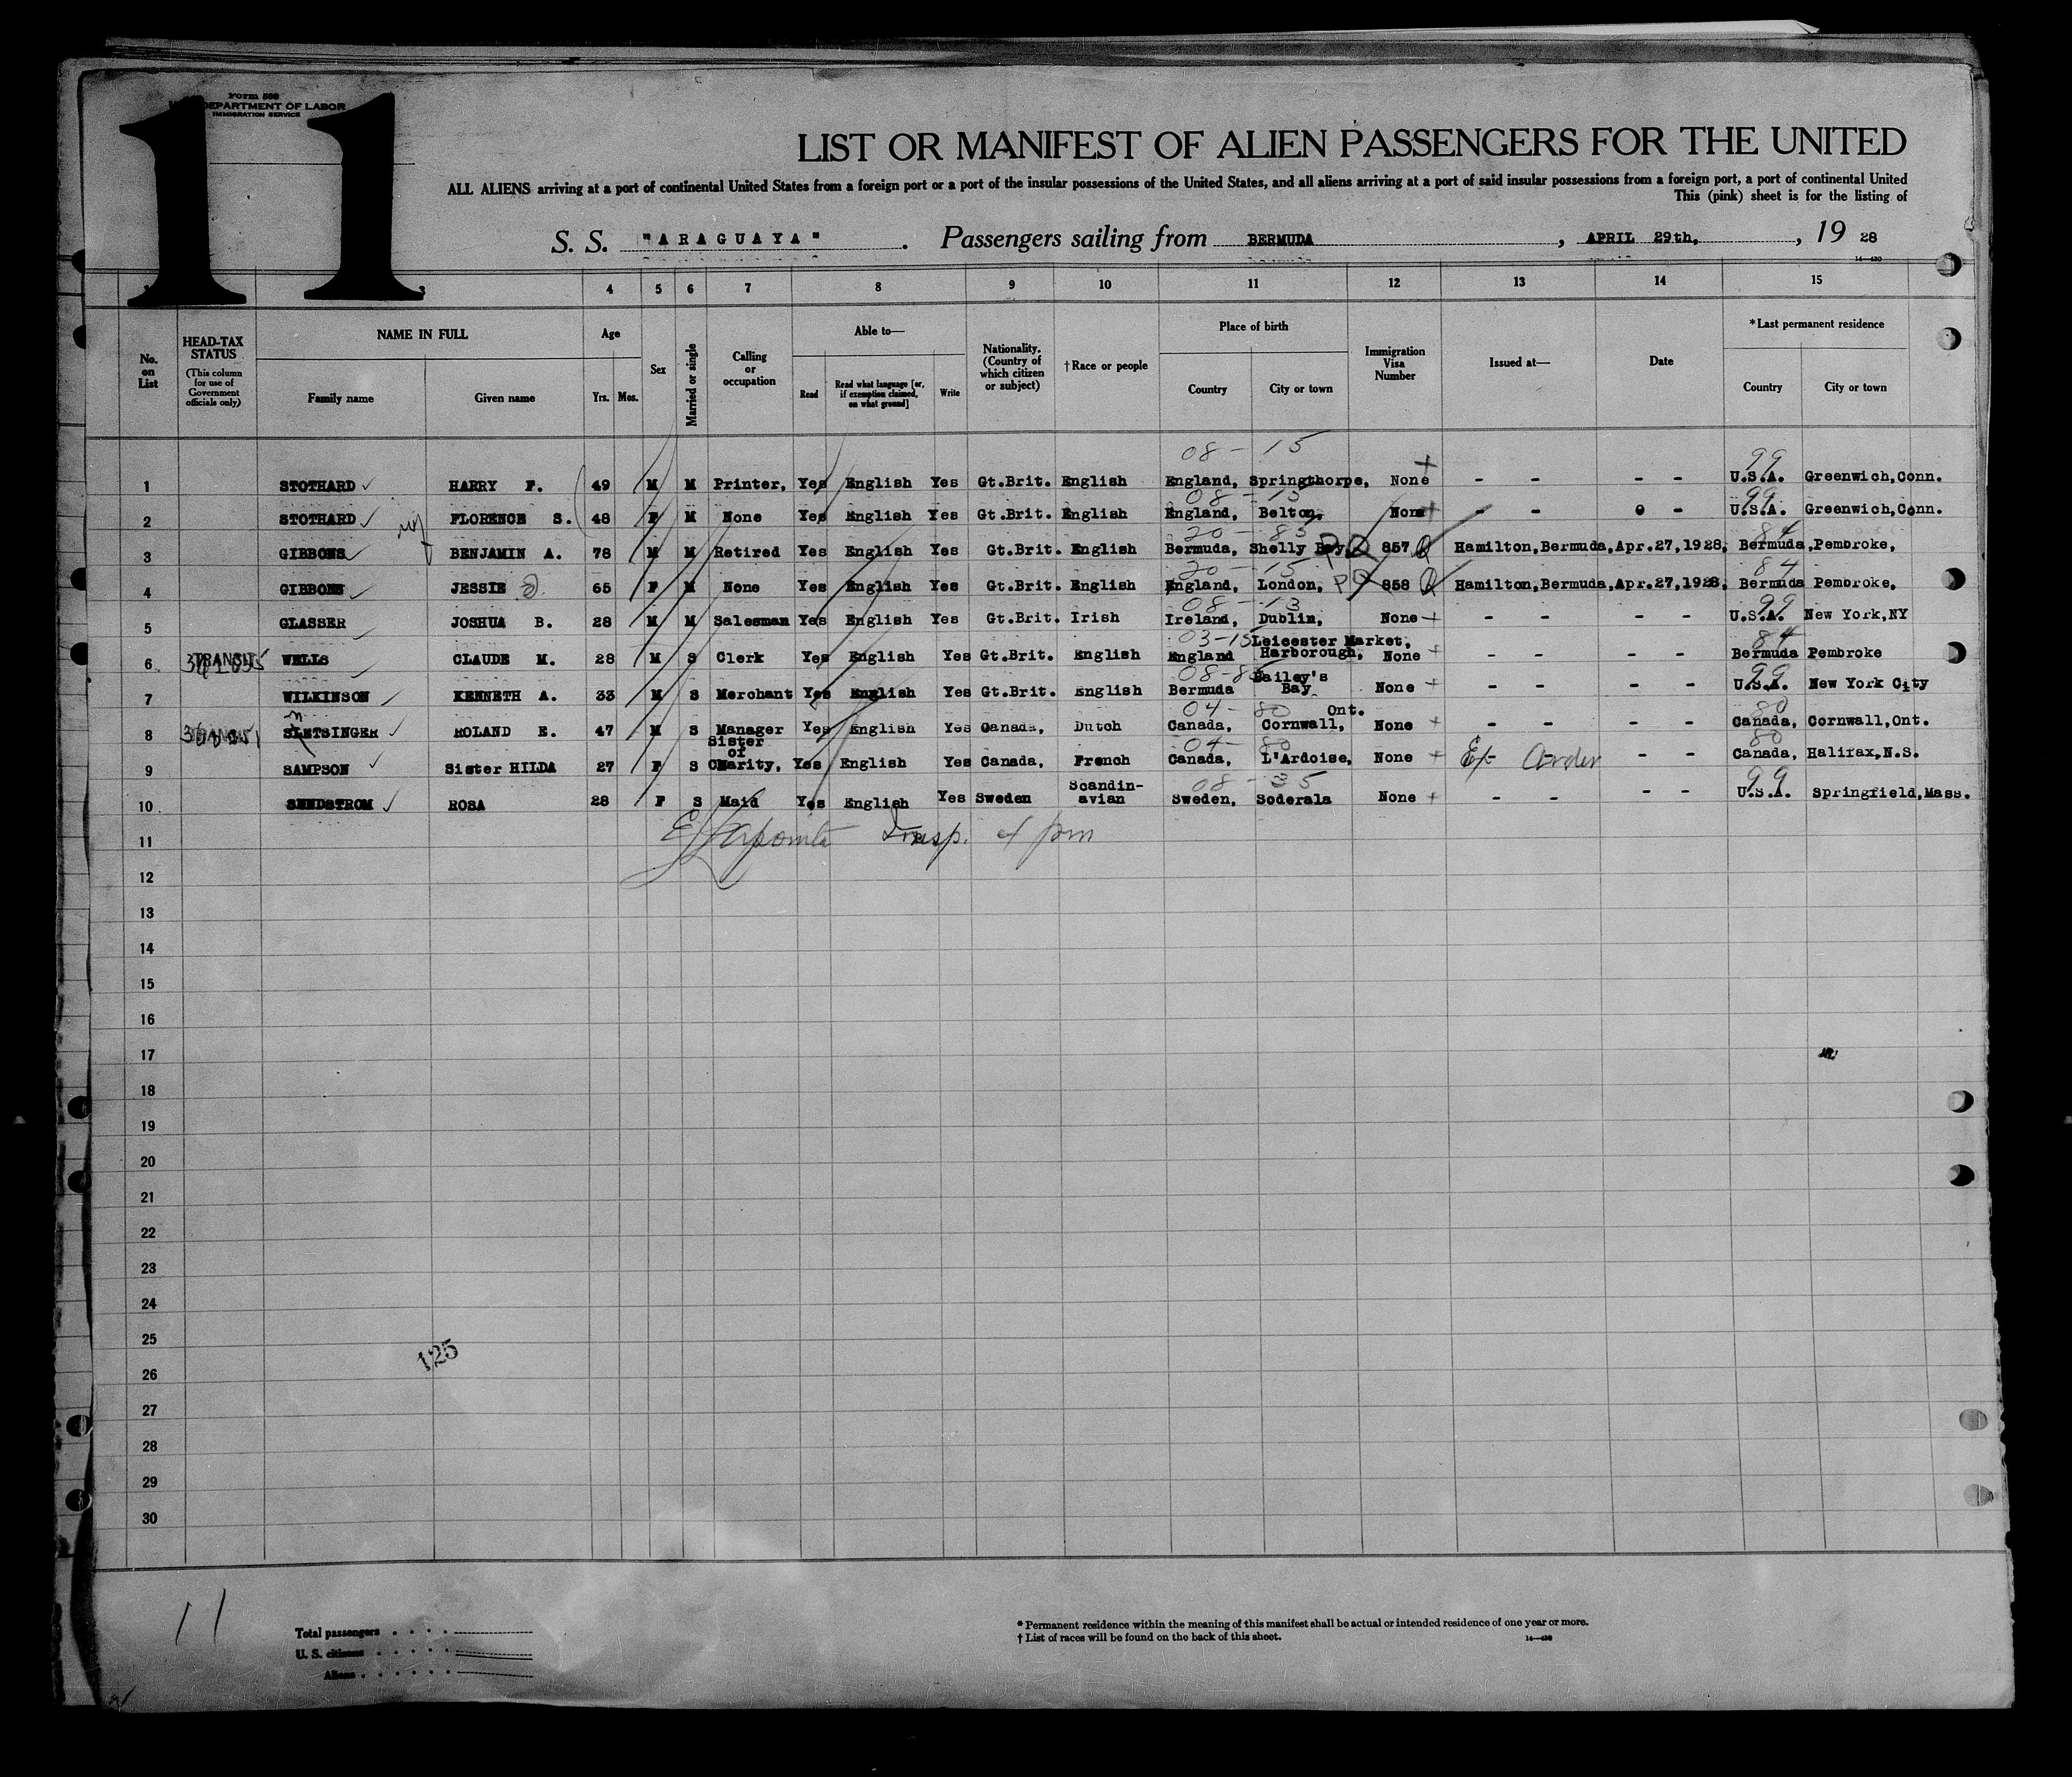 11
Form 500
DEPARTMENT OF LABOR
IMMIGRATION SERVICE
LIST OR MANIFEST OF ALIEN PASSENGERS FOR THE UNITED
ALL ALIENS arriving at a port of continental United States from a foreign port or a port of the insular possessions of the United States, and all aliens arriving at a port of said insular possessions from a foreign port, a port of continental United
This (pink) sheet is for the listing of
S. S. "ARAGUAYA". Passengers sailing from BERMUDA, APRIL 29th, , 19 28
3 4 5 6 7 8 9 10 11 12 13 14 15
No. on List HEAD-TAX STATUS (This column for use of Government officials only) NAME IN FULL Family name Given name Age Yrs. Mos. Sex Married or single Calling or occupation Able to— Read Read what language [or, if exemption claimed, on what ground] Write Nationality. (Country of which citizen or subject) †Race or people Place of birth Country City or town Immigration Visa Number Issued at— Date *Last permanent residence Country City or town
08-15 99
1 STOTHARD HARRY F. 49 M M Printer, Yes English Yes Gt.Brit. English England, Springthorpe, None - - - - U.S.A. Greenwich,Conn.
08-15 99
2 STOTHARD FLORENCE S. 48 F M None Yes English Yes Gt.Brit. English England, Belton, None - - - U.S.A. Greenwich,Conn.
20-85 84
3 GIBBONS BENJAMIN A. 78 M M Retired Yes English Yes Gt.Brit. English Bermuda, Shelly Bay, 857 Hamilton,Bermuda,Apr.27,1928, Bermuda,Pembroke,
20-15 84
4 GIBBONS JESSIE 65 F M None Yes English Yes Gt.Brit. English England, London, 858 Hamilton,Bermuda,Apr.27,1928, Bermuda Pembroke,
08-13 99
5 GLASSER JOSHUA B. 28 M M Salesman Yes English Yes Gt.Brit. Irish Ireland, Dublin, None - - - - U.S.A. New York,NY
03-15 84
6 TRANSIT WELLS CLAUDE M. 28 M S Clerk Yes English Yes Gt.Brit. English England Leicester Market, Harborough, None - - - - Bermuda Pembroke
08-85 99
7 WILKINSON KENNETH A. 33 M S Merchant Yes English Yes Gt.Brit. English Bermuda Bailey's Bay None - - - - U.S.A. New York City
04-80 80
8 TRANSIT SLETSINGER ROLAND E. 47 M S Manager Yes English Yes Canada, Dutch Canada, Cornwall, Ont. None - - - - Canada, Cornwall,Ont.
04-80 80
9 SAMPSON Sister HILDA 27 F S Sister of Charity, Yes English Yes Canada, French Canada, L'Ardoise, None - - Canada, Halifax,N.S.
08-35 99
10 SUNDSTROM ROSA 28 F S Maid Yes English Yes Sweden Scandin-avian Sweden, Soderala None - - - - U.S.A. Springfield,Mass.
11 Insp.
12
13
14
15
16
17
18
19
20
21
22
23
24
25
125
26
27
28
29
30
11
Total passengers
U. S. citizens
Aliens
* Permanent residence within the meaning of this manifest shall be actual or intended residence of one year or more.
† List of races will be found on the back of this sheet.